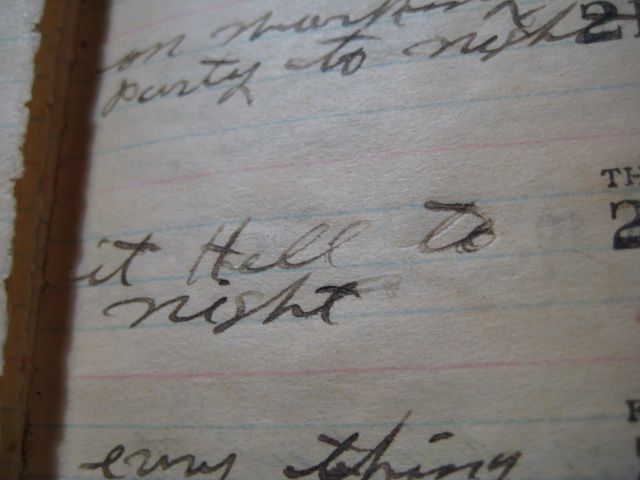 on marking
party to night
21
TH
it Hell to
2
night
F
evry thing